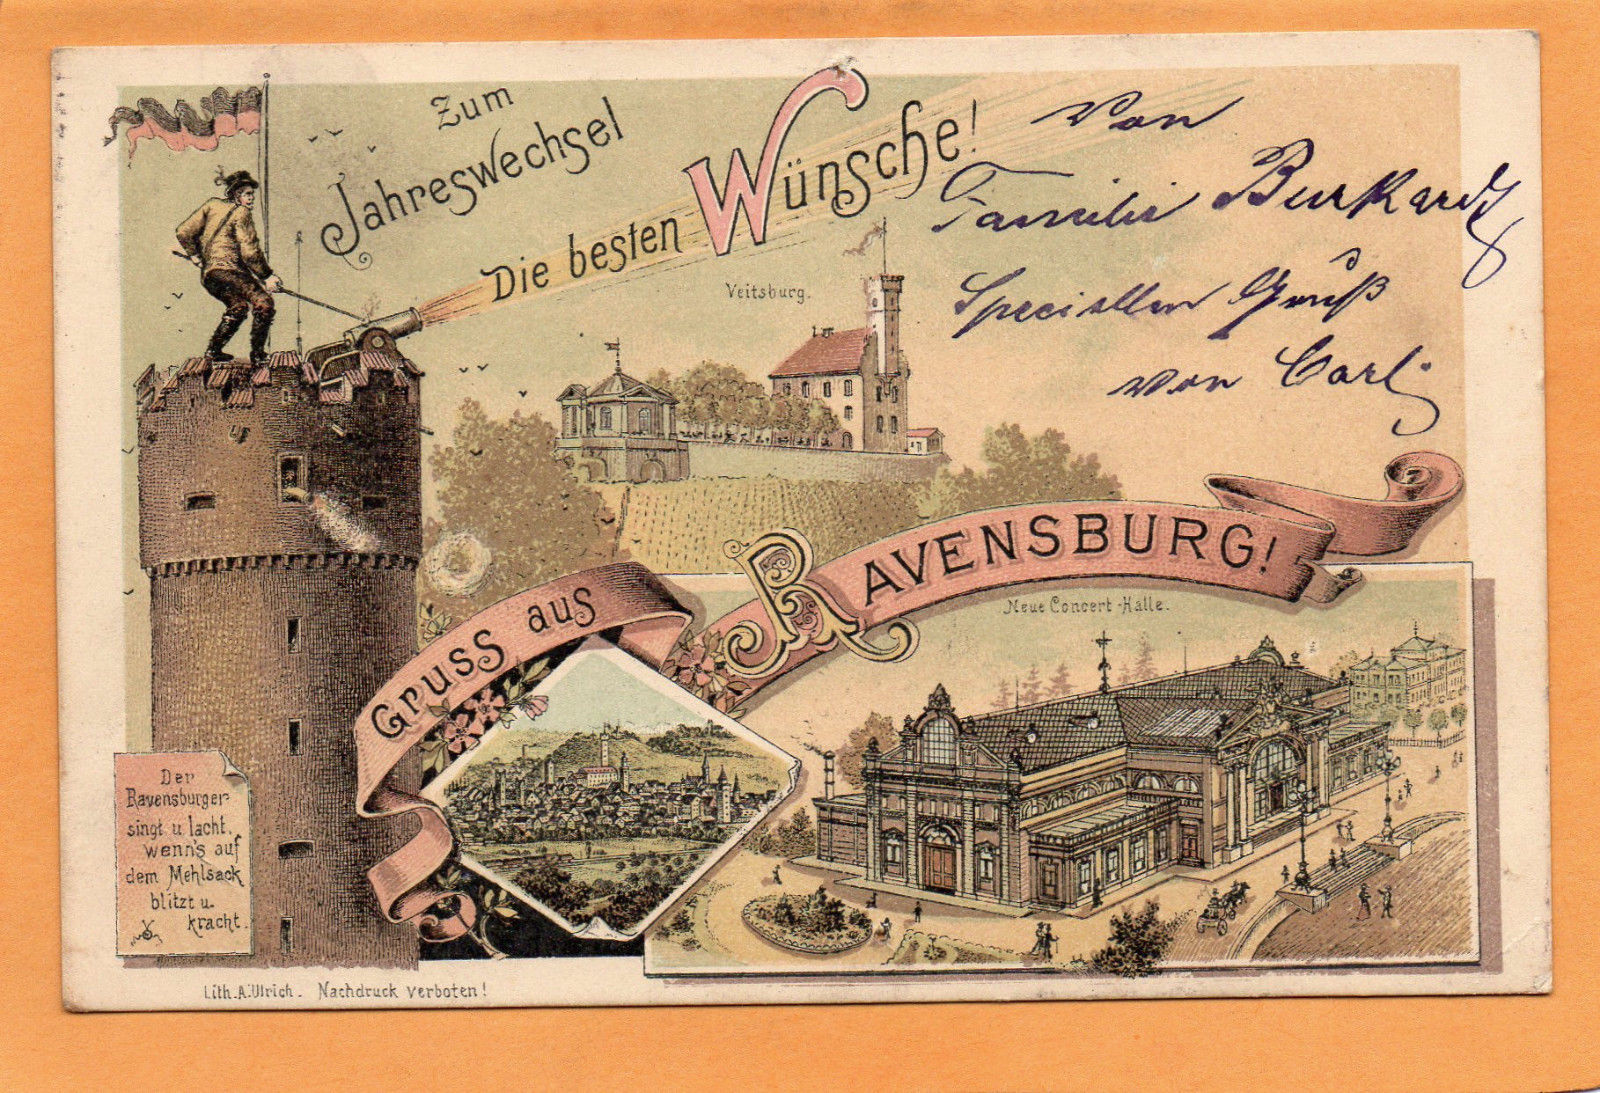 Zum
Jahreswechsel
Die besten Wünsche!
Von
Familie Burkardt
Speciellen Gruß
von Carl
Veitsburg.
Gruss aus
RAVENSBURG!
Neue Concert-Halle.
Der
Ravensburger
singt u. lacht,
wenn's auf
dem Mehlsack
blitzt u.
kracht.
Lith. A. Ulrich. Nachdruck verboten!